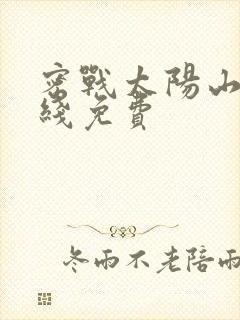 密戰太陽山
綫免費
冬雨不老陪雨